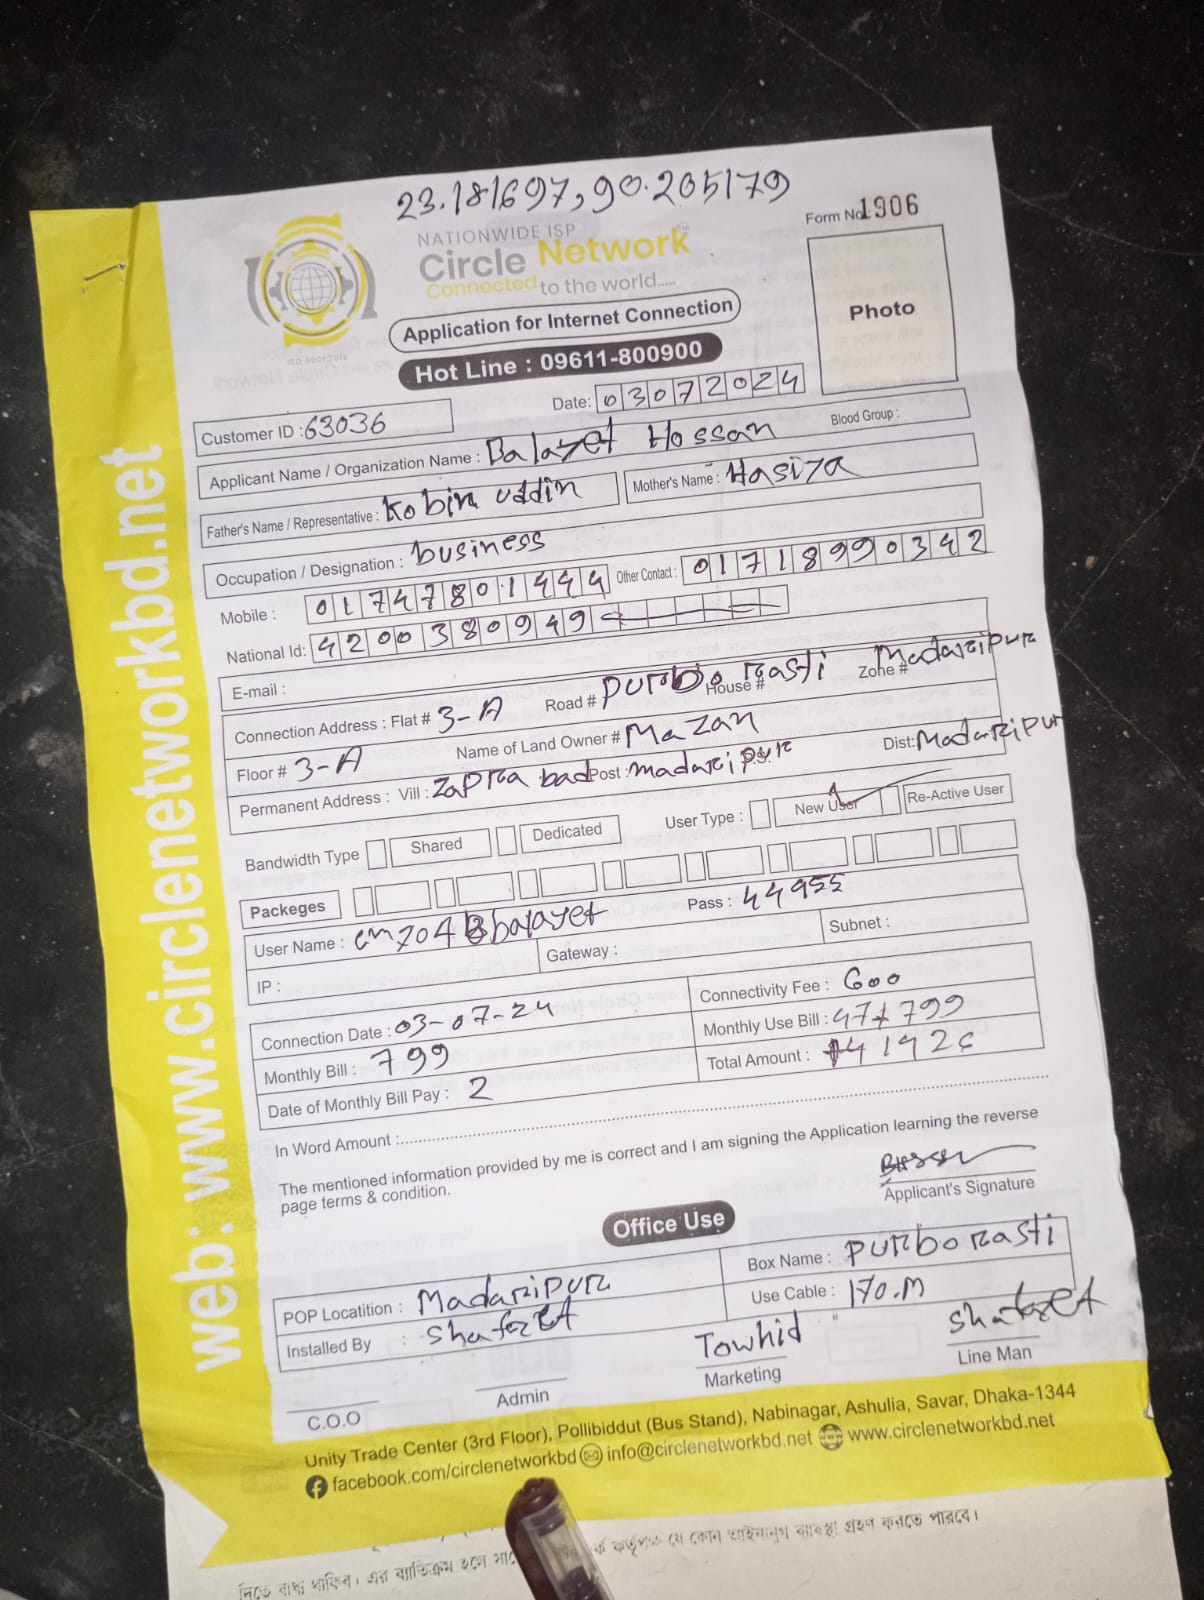 23.181697,90.205179
NATIONWIDE ISP
Form No: 1906
Circle Network
Connected to the world.....
Photo
ISO 9001:2015
Application for Internet Connection
Hot Line : 09611-800900
Customer ID : 63036
Date: 03072024
Applicant Name / Organization Name : Balayet Hossan Blood Group :
Father's Name / Representative : Kobir uddin Mother's Name : Hasiza
Occupation / Designation : business
Mobile : 01747801444 Other Contact : 01718990342
National Id: 4200380949
E-mail :
Connection Address : Flat # 3-A Road # Purbo rasti House # Zone # Madaripur
Floor # 3-A Name of Land Owner # Mazan
Permanent Address : Vill : Zapra bad Post : madaripur P.S: Dist: Madaripur
Bandwidth Type Shared Dedicated User Type : New User Re-Active User
Packeges
User Name : balayet Pass : 44955
IP : Gateway : Subnet :
Connection Date : 03-07-24 Connectivity Fee : 600
Monthly Bill : 799 Monthly Use Bill : 47+799
Date of Monthly Bill Pay : 2 Total Amount :
In Word Amount :
The mentioned information provided by me is correct and I am signing the Application learning the reverse
page terms & condition.
Applicant's Signature
Office Use
POP Locatition : Madaripur Box Name : Purbo rasti
Installed By : Shafazet Use Cable : 170.M
Towhid Shafazet
C.O.O Admin Marketing Line Man
Unity Trade Center (3rd Floor), Pollibiddut (Bus Stand), Nabinagar, Ashulia, Savar, Dhaka-1344
facebook.com/circlenetworkbd info@circlenetworkbd.net www.circlenetworkbd.net
web: www.circlenetworkbd.net
কর্তৃপক্ষ যে কোন আইনানুগ ব্যবস্থা গ্রহণ করতে পারবে।
দিতে বাধ্য থাকিব। এর ব্যতিক্রম হলে